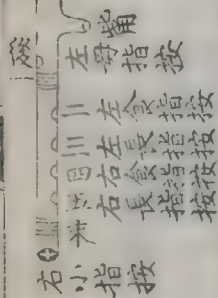 觜
後
左母指按
二左食指按
三左長指按
四右食指按
右長指按
右小指按